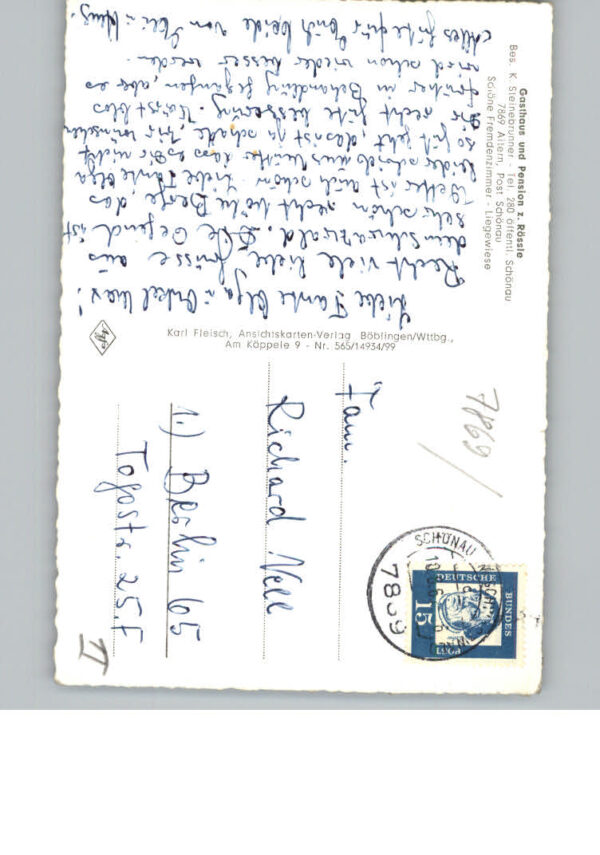 Gasthaus und Pension z. Rössle
Bes. K. Steinebrunner - Tel. 280 öffentl. Schönau
7869 Aitern, Post Schönau
Schöne Fremdenzimmer - Liegewiese
Liebe Tante Olga u. Onkel Max!
Recht viele liebe Grüsse aus
dem Schwarzwald. Die Gegend ist
sehr schön recht hohe Berge, das
Wetter ist auch schön. Liebe Tante Olga
leider schrieb uns Mutter dass es Dir nicht
so gut geht, das ist ja schade, wir wünschen
Dir recht gute Besserung. Wärst blos
früher in Behandlung gegangen, aber es
wird schon wieder besser werden.
Alles Gute für Euch beide von
Karl Fleisch, Ansichtskarten-Verlag Böblingen/Wttbg.,
Am Käppele 9 - Nr. 565/14934/99
Agfa
7869
SCHÖNAU
7869
DEUTSCHE
BUNDES
POST
15
Fam.
Richard Nell
1.) Berlin 65
Togostr. 25.F
II